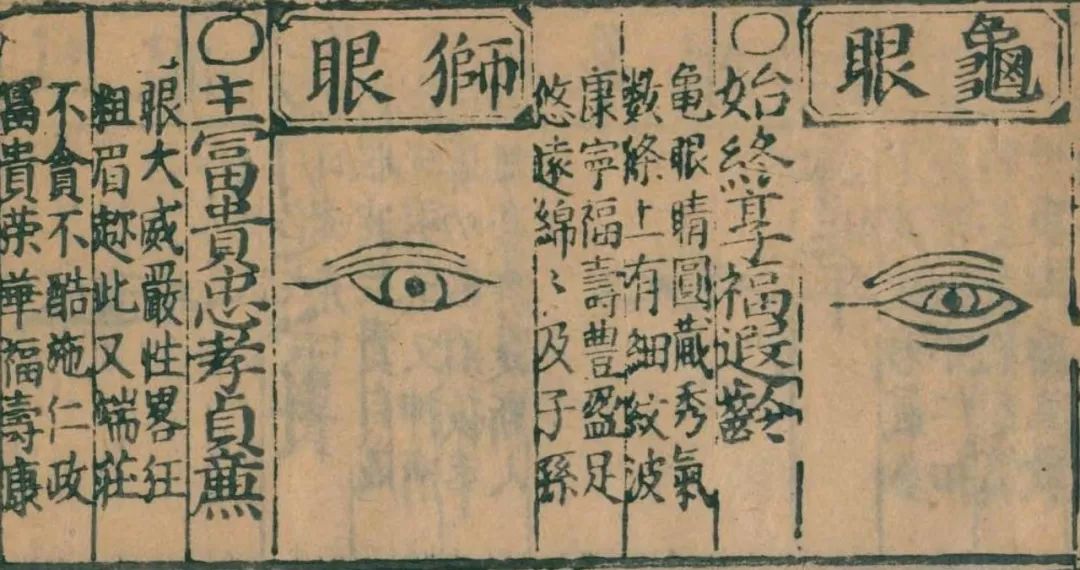 龜眼
○始終享福遐齡
亀眼睛圓藏秀氣
數條上有細紋波
康寧福壽豊盈足
悠遠綿〻及子孫
獅眼
○主冨貴忠孝貞廉
眼大威嚴性畧狂
粗眉趂此又端莊
不貪不酷施仁政
冨貴荣華福壽康